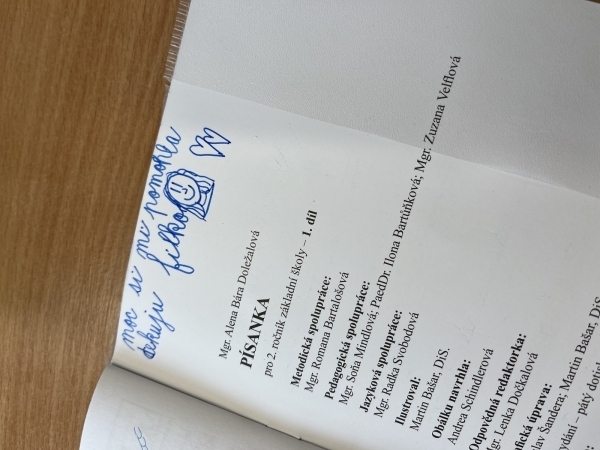 moc si mi pomohla
dekuju filko
Mgr. Alena Bára Doležalová
PÍSANKA
pro 2. ročník základní školy – 1. díl
Metodická spolupráce:
Mgr. Romana Bartalošová
Pedagogická spolupráce:
Mgr. Soňa Mindlová; PaedDr. Ilona Bartůňková; Mgr. Zuzana Velflová
Jazyková spolupráce:
Mgr. Radka Svobodová
Ilustroval:
Martin Bašar, DiS.
Obálku navrhla:
Andrea Schindlerová
Odpovědná redaktorka:
Mgr. Lenka Dočkalová
afická úprava:
slav Šandera; Martin Bašar, DiS
vydání – pátý dotisk